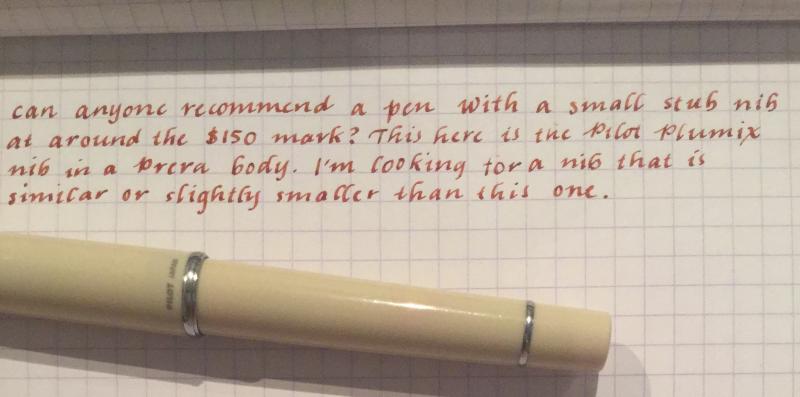 can anyone recommend a pen with a small stub nib
at around the $150 mark? This here is the Pilot Plumix
nib in a Prera body. I'm looking for a nib that is
similar or slightly smaller than this one.
PILOT JAPAN